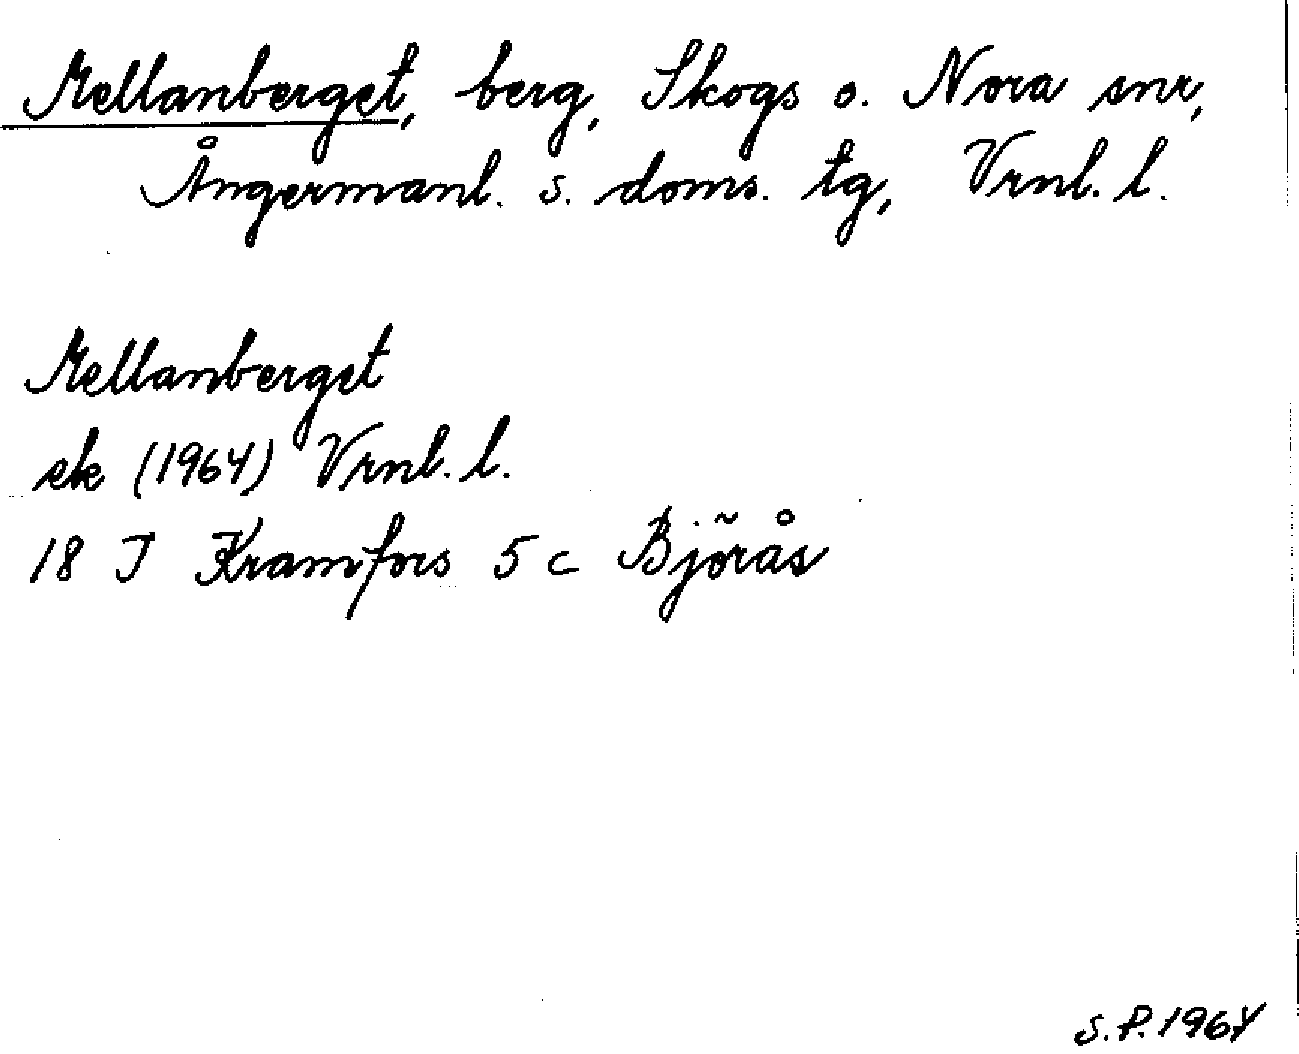 Mellanberget, berg, Skogs o. Nora snr,
Ångermanl. s. doms. tg, Vrnl. l.
Mellanberget
ek (1964) Vrnl. l.
18 J Kramfors 5 c Björås
S.P. 1964